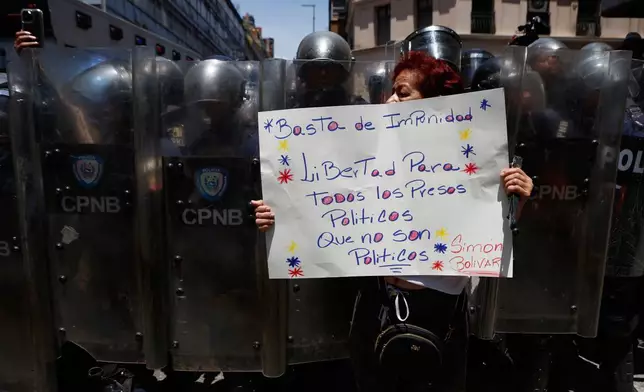 Basta de Impunidad
Libertad Para
Todos los Presos
Politicos
Que no son
Politicos
Simón
Bolivar
CPNB
CPNB
POLI